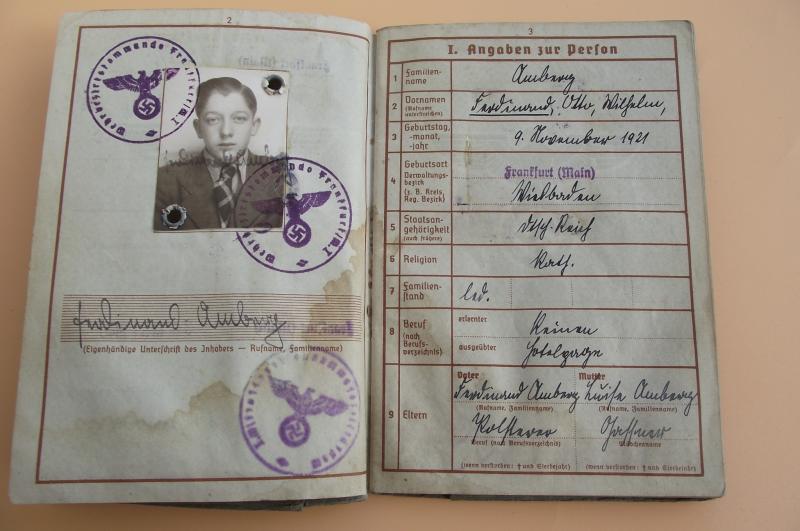 2
Wehrbezirkskommando Frankfurt/M. I
Wehrbezirkskommando Frankfurt/M. I
Ferdinand Amberg
(Eigenhändige Unterschrift des Inhabers — Rufname, Familienname)
3
I. Angaben zur Person
1 Familien-
name
Amberg
2 Vornamen
(Rufname
unterstreichen)
Ferdinand, Otto, Wilhelm,
3 Geburtstag,
-monat,
-jahr
9. November 1921
4 Geburtsort
Verwaltungs-
bezirk
(z. B. Kreis,
Reg. Bezirk)
Frankfurt (Main)
Wiesbaden
5 Staatsan-
gehörigkeit
(auch frühere)
Dtsch. Reich
6 Religion
Kath.
7 Familien-
stand
led.
8 Beruf
(nach
Berufs-
verzeichnis)
erlernter
Keinen
ausgeübter
Hotelpage
9 Eltern
Vater
Mutter
Ferdinand Amberg
Luise Amberg
(Rufname, Familienname)
(Rufname, Familienname)
Polsterer
Hassner
Beruf (nach Berufsverzeichnis)
Mädchenname
(wenn verstorben: † und Sterbejahr)
(wenn verstorben: † und Sterbejahr)